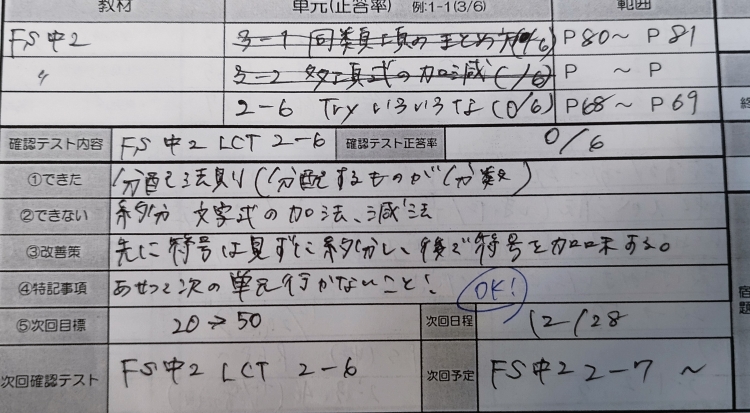 教材 単元(正答率) 例:1-1(3/6) 範囲
FS中2 3-1 同類項のまとめ方(0/6) P80~ P81
〃 3-2 多項式の加減(/6) P ~ P
2-6 Try いろいろな(0/6) P68~ P69
確認テスト内容 FS中2 LCT 2-6 確認テスト正答率 0/6
①できた 分配法則(分配するものが分数)
②できない 約分 文字式の加法、減法
③改善策 先に符号は見ずに約分し、後で符号を加味する。
④特記事項 あせって次の単元行かないこと! OK!
⑤次回目標 20→50 次回日程 12/28
次回確認テスト FS中2 LCT 2-6 次回予定 FS中2 2-7 ~
宿題